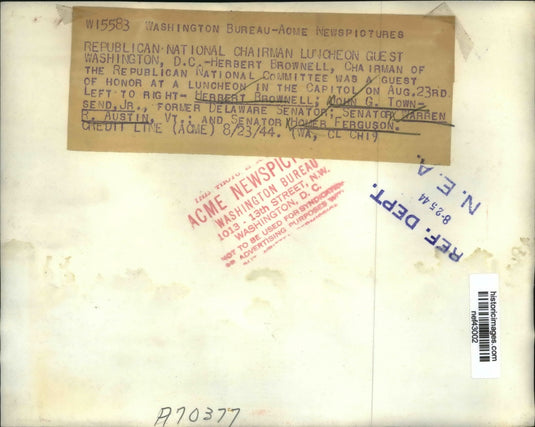 W15583 WASHINGTON BUREAU-ACME NEWSPICTURES
REPUBLICAN NATIONAL CHAIRMAN LUNCHEON GUEST
WASHINGTON, D.C.-HERBERT BROWNELL, CHAIRMAN OF
THE REPUBLICAN NATIONAL COMMITTEE WAS A GUEST
OF HONOR AT A LUNCHEON IN THE CAPITOL ON AUG.23RD.
LEFT TO RIGHT- HERBERT BROWNELL; JOHN G. TOWN-
SEND,JR., FORMER DELAWARE SENATOR; SENATOR WARREN
R. AUSTIN, VT.; AND SENATOR HOMER FERGUSON.
CREDIT LINE (ACME) 8/23/44. (WA, CL CHI)
ACME NEWSPIC
WASHINGTON BUREAU
1013 - 13th STREET, N.W.
WASHINGTON, D. C.
NOT TO BE USED FOR SYNDICATED
ADVERTISING PURPOSES
REF. DEPT.
8-25-44
N. E. A.
historicimages.com
nef43002
A70377